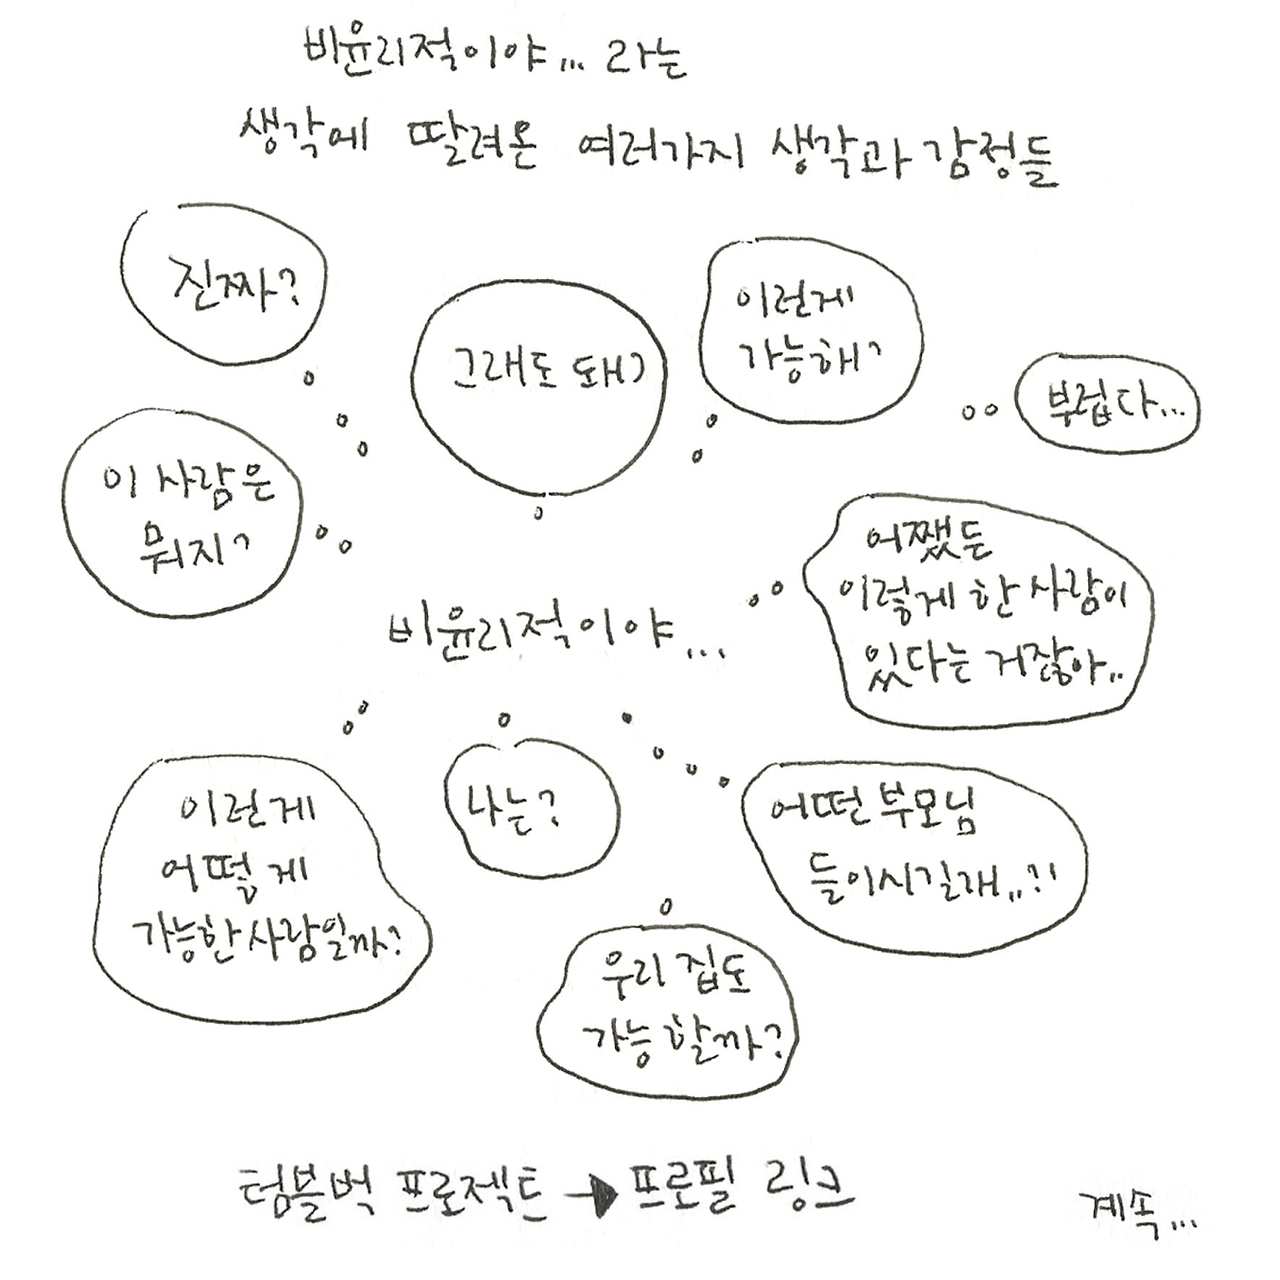 비윤리적이야... 라는
생각에 딸려온 여러가지 생각과 감정들
진짜?
그래도 돼?
이런게
가능해?
부럽다...
이 사람은
뭐지?
어쨌든
이렇게 한 사람이
있다는 거잖아..
비윤리적이야...
이런게
어떻게
가능한 사람일까?
나는?
어떤 부모님
들이시길래..?!
우리 집도
가능할까?
텀블벅 프로젝트 → 프로필 링크
계속...